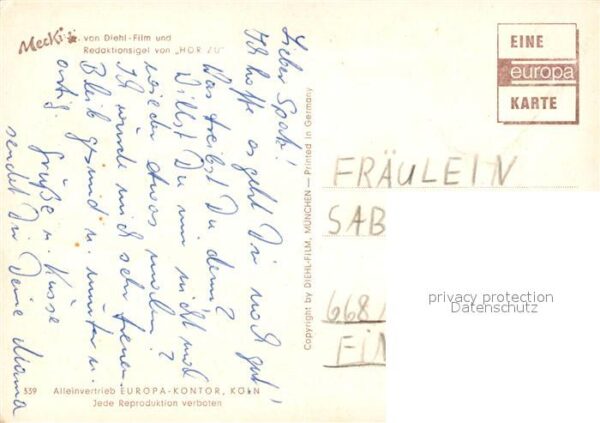 Mecki von Diehl-Film und
Redaktionsigel von „HÖR ZU"
Lieber Spatz!
Ich hoffe es geht Dir noch gut!
Was treibst Du denn?
Willst Du mir nicht mal
wieder etwas malen?
Ich würde mich sehr freuen.
Bleib gesund u. munter u.
artig. Grüße u. Küsse
sendet Dir Deine Mama
Copyright by DIEHL-FILM, MÜNCHEN — Printed in Germany
539 Alleinvertrieb EUROPA-KONTOR, KÖLN
Jede Reproduktion verboten
EINE
europa
KARTE
FRÄULEIN
SAB
668
privacy protection
Datenschutz